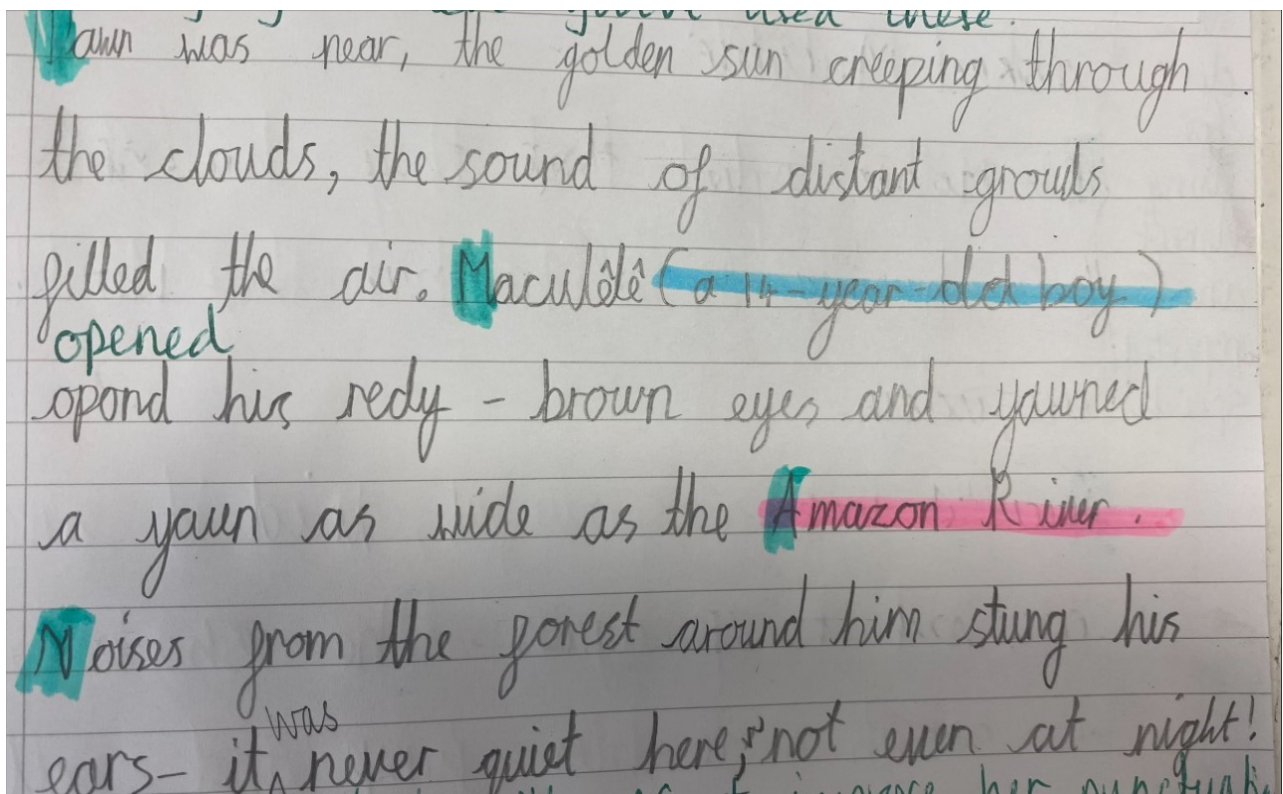 used these.
Dawn was near, the golden sun creeping through
the clouds, the sound of distant growls
filled the air. Maculêlê (a 14-year-old boy)
opened
opond his redy - brown eyes and yawned
a yawn as wide as the Amazon River.
Noises from the forest around him stung his
was
ears- it never quiet here, not even at night!
her punctuati